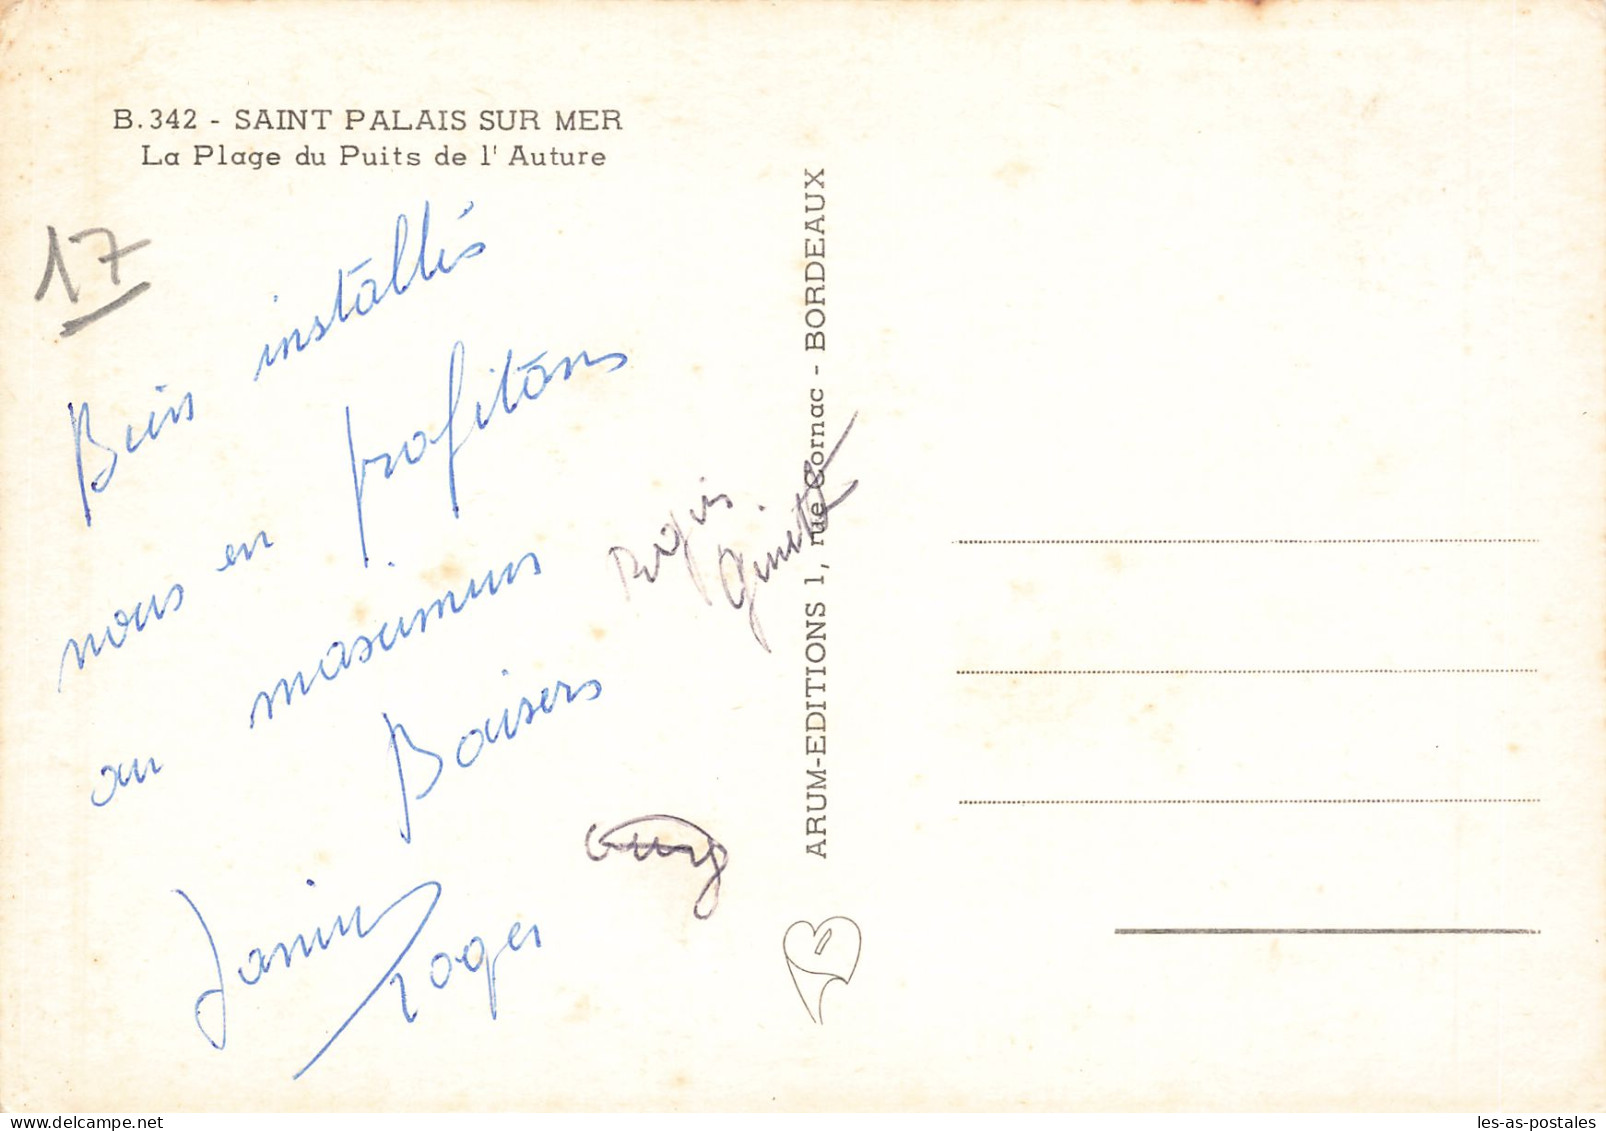 B.342 - SAINT PALAIS SUR MER
La Plage du Puits de l' Auture
17
Bien installés
nous en profitons
au maximum
Baisers
Régis
Ginette
Janine
Roger
Guy
ARUM-EDITIONS 1, rue Cornac - BORDEAUX
delcampe.net
les-as-postales